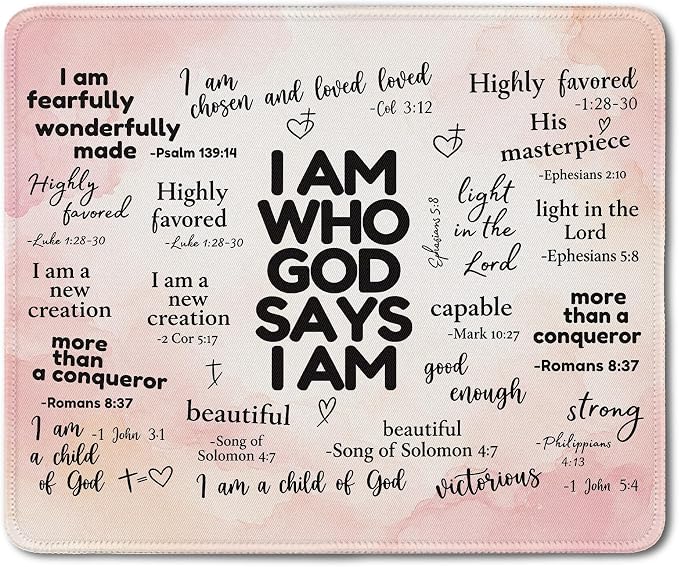 I am
fearfully
wonderfully
made -Psalm 139:14
I am
chosen and loved loved
-Col 3:12
Highly favored
-1:28-30
His
masterpiece
-Ephesians 2:10
Highly
favored
-Luke 1:28-30
Highly
favored
-Luke 1:28-30
I AM
WHO
GOD
SAYS
I AM
Ephesians 5:8
light
in the
Lord
light in the
Lord
-Ephesians 5:8
I am a
new
creation
I am a
new
creation
-2 Cor 5:17
capable
-Mark 10:27
more
than a
conqueror
-Romans 8:37
more
than
a conqueror
-Romans 8:37
good
enough
strong
-Philippians
4:13
beautiful
-Song of
Solomon 4:7
beautiful
-Song of Solomon 4:7
I am -1 John 3:1
a child
of God
I am a child of God
victorious -1 John 5:4